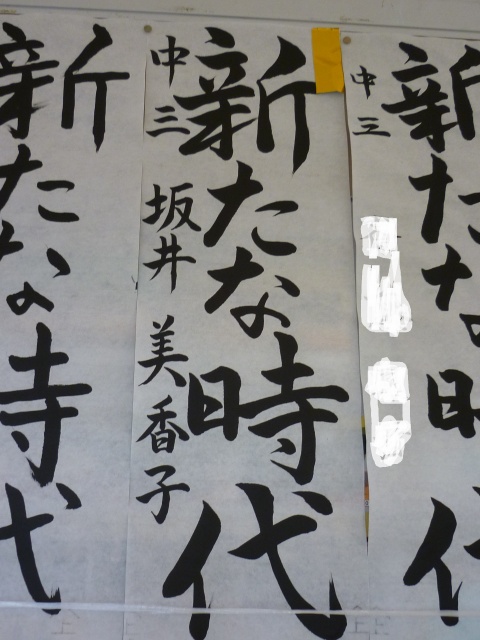 新たな時代
中三 坂井 美香子
新たな時代
中三
新たな時代